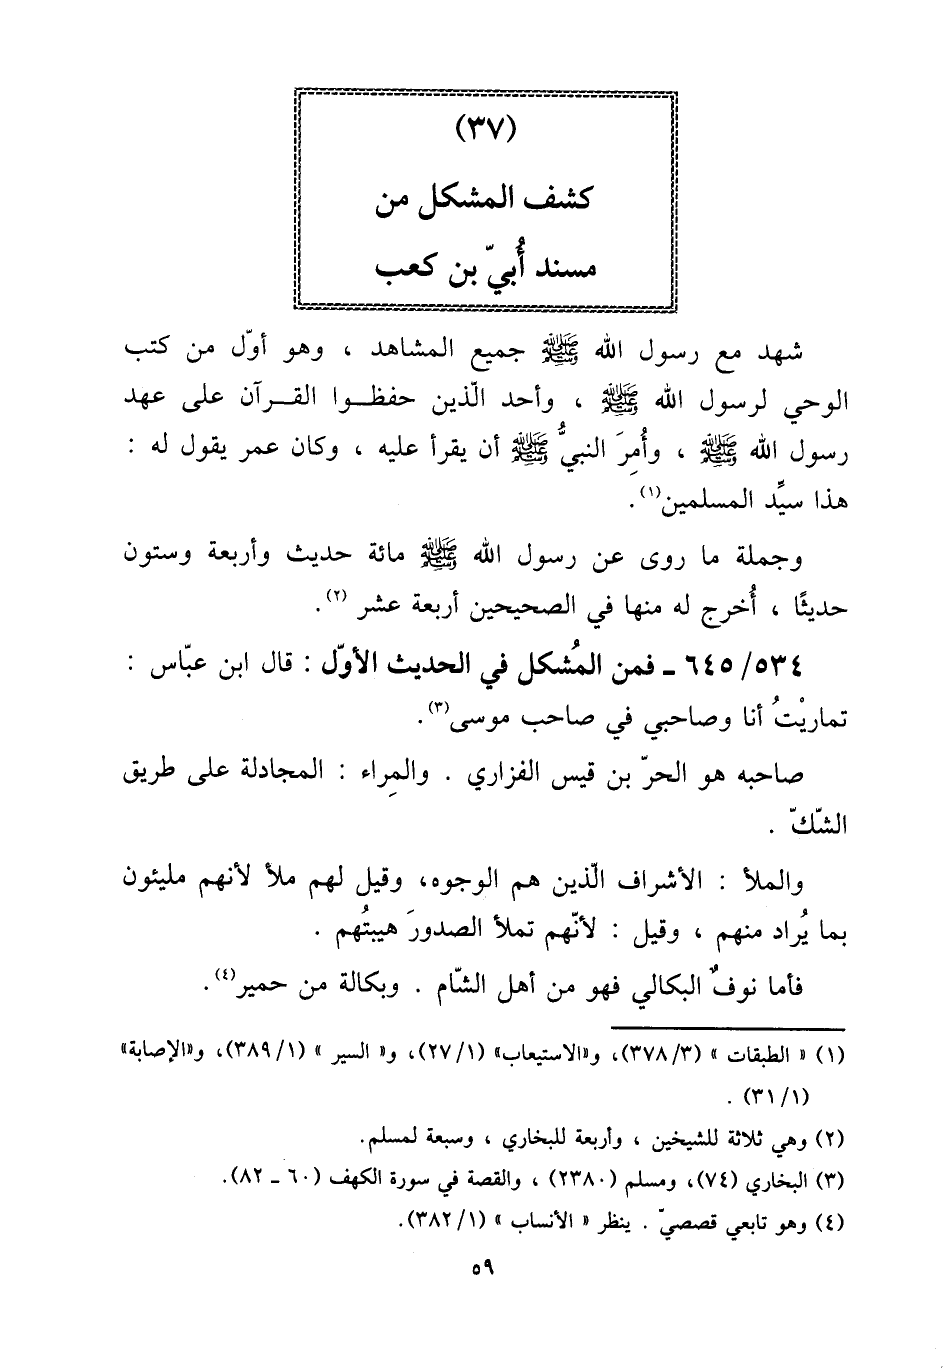 (٣٧)
كشف المشكل من
مسند أُبيّ بن كعب
شهد مع رسول الله ﷺ جميع المشاهد ، وهو أوّل من كتب
الوحي لرسول الله ﷺ ، وأحد الّذين حفظـوا القـرآن على عهد
رسول الله ﷺ ، وأُمِرَ النبيُّ ﷺ أن يقرأ عليه ، وكان عمر يقول له :
هذا سيِّد المسلمين(١).
وجملة ما روى عن رسول الله ﷺ مائة حديث وأربعة وستون
حديثًا ، أُخرج له منها في الصحيحين أربعة عشر (٢).
٥٣٤/ ٦٤٥ ـ فمن المُشكل في الحديث الأوّل : قال ابن عبّاس :
تماريْتُ أنا وصاحبي في صاحب موسى(٣).
صاحبه هو الحرّ بن قيس الفزاري . والمِراء : المجادلة على طريق
الشّكّ .
والملأ : الأشراف الّذين هم الوجوه، وقيل لهم ملأ لأنهم مليئون
بما يُراد منهم ، وقيل : لأنّهم تملأ الصدورَ هيبتُهم .
فأما نوفٌ البكالي فهو من أهل الشّام . وبكالة من حمير(٤).
(١) « الطبقات » (٣٧٨/٣)، و«الاستيعاب» (٢٧/١)، و« السير » (٣٨٩/١)، و«الإصابة»
(٣١/١) .
(٢) وهي ثلاثة للشيخين ، وأربعة للبخاري ، وسبعة لمسلم.
(٣) البخاري (٧٤)، ومسلم (٢٣٨٠) ، والقصة في سورة الكهف (٦٠ ـ ٨٢).
(٤) وهو تابعي قصصيّ . ينظر « الأنساب » (٣٨٢/١).
٥٩